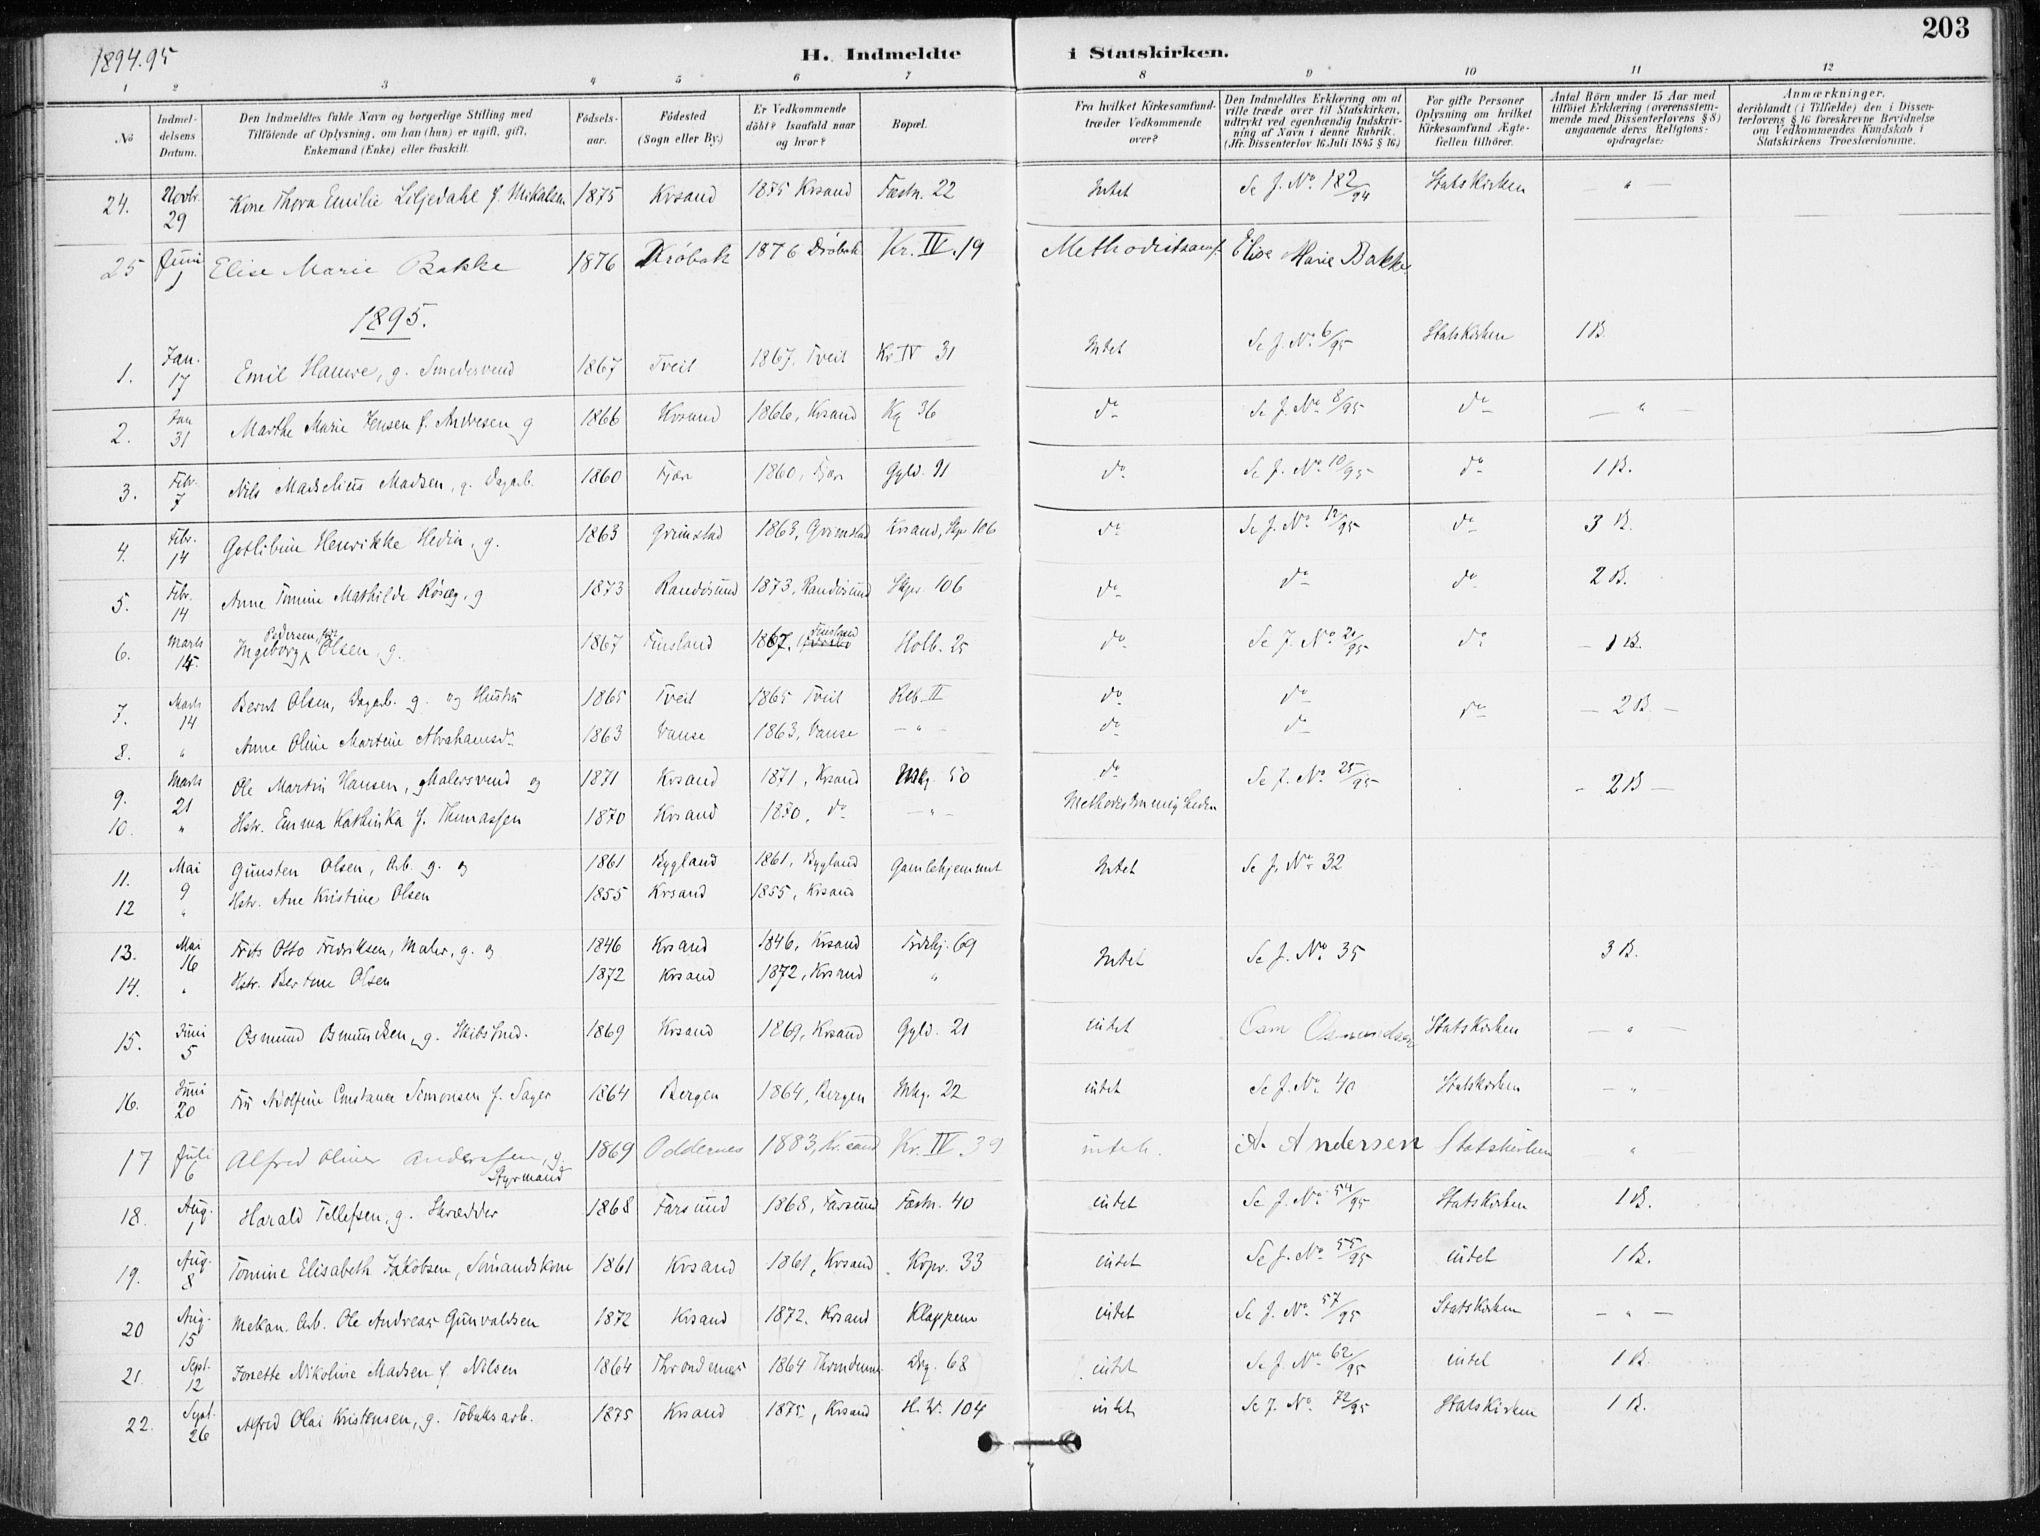 1894.95
H. Indmeldte i Statskirken.
203
1 2 3 4 5 6 7 8 9 10 11 12
No
Indmel-
delsens
Datum.
Den Indmeldtes fulde Navn og borgerlige Stilling med
Tilføiende af Oplysning, om han (hun) er ugift, gift,
Enkemand (Enke) eller fraskilt.
Fødsels-
aar.
Fødested
(Sogn eller By.)
Er Vedkommende
döbt? Isaafald naar
og hvor?
Bopæl.
Fra hvilket Kirkesamfund
træder Vedkommende
over?
Den Indmeldtes Erklæring om at
ville træde over til Statskirken,
udtrykt ved egenhændig Indskriv-
ning af Navn i denne Rubrik.
(Jfr. Dissenterlov 16 Juli 1845 § 16.)
For gifte Personer
Oplysning om hvilket
Kirkesamfund Ægte-
fællen tilhörer.
Antal Börn under 15 Aar med
tilföiet Erklæring (overensstem-
mende med Dissenterlovens § 8)
angaaende deres Religions-
opdragelse.
Anmærkninger,
deriblandt (i Tilfælde) den i Dissen-
terlovens § 16 foreskrevne Bevidnelse
om Vedkommendes Kundskab i
Statskirkens Troeslærdomme.
24. Novbr. 29 Kone Thora Emilie Liljedahl f. Mikalsen 1875 Krsand 1875 Krsand Fæstn. 22 Intet Se J. No 182/94 Statskirken — " —
25 Juni 1 Elise Marie Bakke 1876 Drøbak 1876 Drøbak Kr. IV. 19 Methodistsamf. Elise Marie Bakke
1895.
1. Jan. 17 Emil Hauve, g. Smedesvend 1867 Tveit 1867. Tveit Kr IV 31 Intet Se J. No 6/95 Statskirken 1 B.
2. Jan 31 Marthe Marie Jensen f. Andresen g 1866 Krsand 1866, Krsand Kg 36 do Se J. No 8/95 do — " —
3. Febr. 7 Nils Madselius Madsen, g. Dagarb. 1860 Fjære 1860, Fjære Gyld. 91 do Se J. No 10/95 do 1 B.
4. Febr. 14 Gotlibine Henrikke Hedin, g. 1863 Grimstad 1863, Grimstad Krsand, Skpr 106 do Se J. No 12/95 do 3 B.
5. Febr. 14 Anne Tomine Mathilde Røseg, g 1873 Randøsund 1873, Randøsund Skpr. 106 do do do 2 B.
6. Marts 14 Ingeborg Pedersen, Olsen, g. 1867 Finsland 1867, Finsland Holb. 25 do Se J. No 21/95 do — 1 B.
7. Marts 14 Bernt Olsen, Dagarb. g. og Hustru 1865 Tveit 1865 Tveit Reb. II do do do — 2 B. —
8. " Anne Oline Martine Abrahamsdr 1863 Vanse 1863, Vanse — " — do do
9. Marts 21 Ole Martin Hansen, g Malersvend og 1871 Krsand 1871, Krsand Mkg. 50 do Se J. No 25/95 - 2 B —
10. " Hstr. Emma Kathinka f. Thomassen 1870 Krsand 1870, do — " — Methodistmenigheden
11. Mai 9 Gunsten Olsen, Arb. g. og 1861 Bygland 1861, Bygland Gamlehjemmet Intet Se J. No 32
12 " Hstr. Ane Kristine Olsen 1855 Krsand 1855, Krsand
13. Mai 16 Frits Otto Fredriksen, Maler, g. og 1846 Krsand 1846, Krsand Tordkj. 69 Intet Se J. No 35 3 B.
14. " Hstr. Bertine Olsen 1872 Krsand 1872, Krsand "
15. Juni 5 Osmund Osmundsen, g. Skibsfmd. 1869 Krsand 1869, Krsand Gyld. 21 intet Osm Osmundsen Statskirken — " —
16. Juni 20 Fru Adolfine Constance Simonsen f. Sager 1864 Bergen 1864, Bergen Mkg. 22 intet Se J. No 40 Statskirken — "
17 Juli 6 Alfred Oliver Anderssen, g. Styrmand 1869 Oddernes 1883, Kr.sand Kr. IV. 39 intet. A. Andersen Statskirken "
18. Aug. 1 Harald Tellefsen, g. Skrædder 1868 Farsund 1868, Farsund Fæstn. 40 intet Se J. No 54/95 Statskirken 1 B.
19. Aug. 8 Tomine Elisabeth Jakobsen, Sömandskone 1861 Krsand 1861, Krsand Kopr. 33 intet Se J. No 55/95 intet 1 B.
20 Aug. 15 Mekan. Arb. Ole Andreas Gunvaldsen 1872 Krsand 1872, Krsand Klappene intet Se J. No 57/95 Statskirken — " —
21. Sept. 12 Jonette Nikoline Madsen f. Nilsen 1864 Throndenes 1864 Throndenes Drg. 68 intet Se J. No 62/95 intet 1 B.
22. Sept. 26 Alfred Olai Kristensen, g. Tobaksarb. 1875 Krsand 1875, Krsand H. W. 104 intet Se J. No 72/95 Statskirken 1 B.